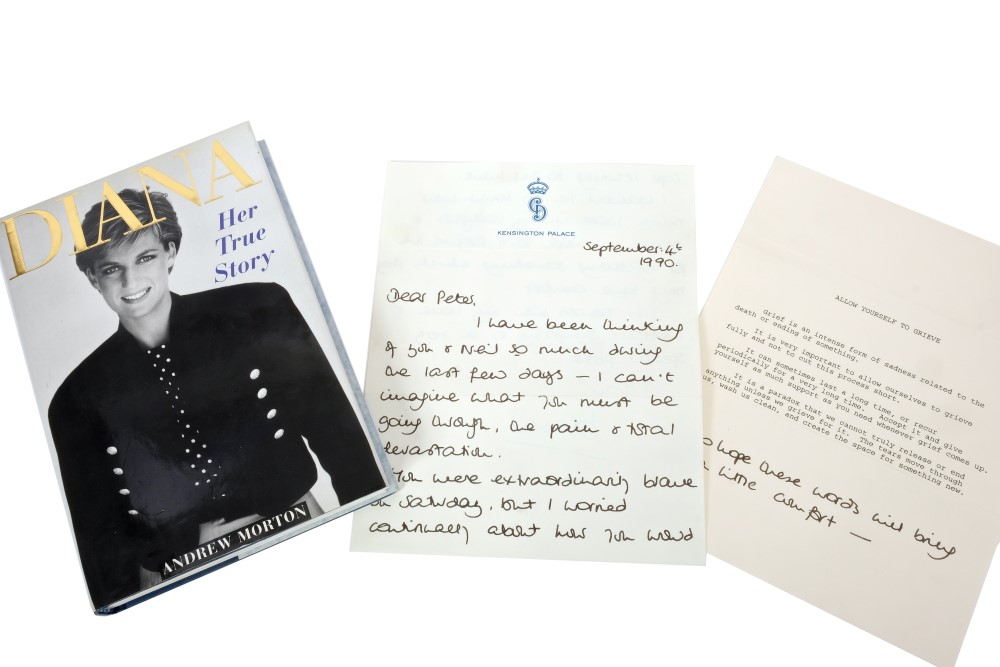 DIANA
Her
True
Story
ANDREW MORTON
KENSINGTON PALACE
September: 4th
1990.
Dear Peter,
I have been thinking
of you & Neil so much during
the last few days – I can't
imagine what you must be
going through, the pain & total
devastation.
You were extraordinarily brave
on Saturday, but I worried
continually about how you would
ALLOW YOURSELF TO GRIEVE
Grief is an intense form of sadness related to the
death or ending of something.
It is very important to allow ourselves to grieve
fully and not to cut this process short.
It can sometimes last a long time, or recur
periodically for a very long time. Accept it and give
yourself as much support as you need whenever grief comes up.
It is a paradox that we cannot truly release or end
anything unless we grieve for it. The tears move through
us, wash us clean, and create the space for something new.
hope these words will bring
little comfort —